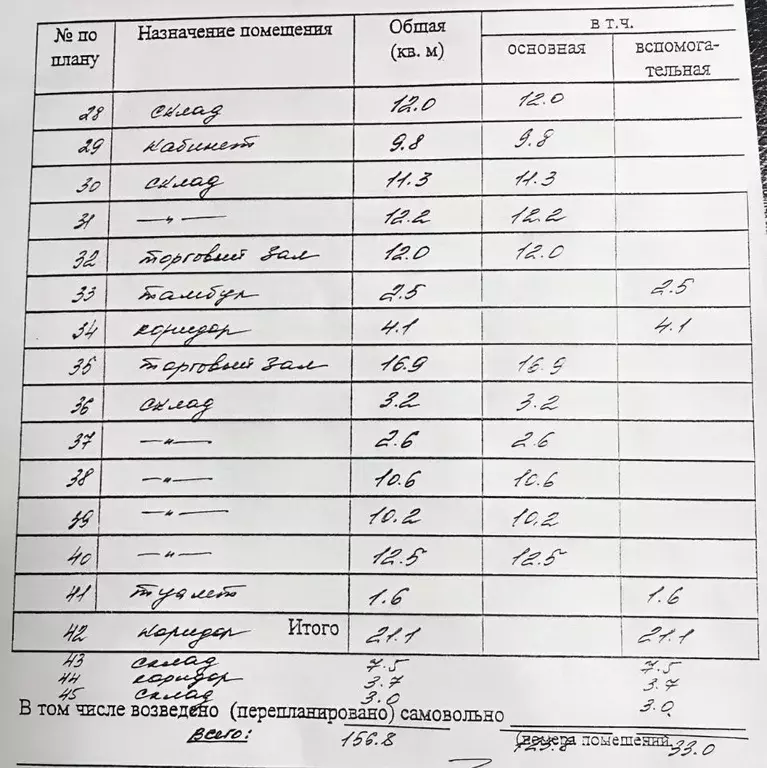 № по плану Назначение помещения Общая (кв. м) в т.ч.
основная вспомога-
тельная
28 склад 12.0 12.0
29 кабинет 9.8 9.8
30 склад 11.3 11.3
31 —"— 12.2 12.2
32 торговый зал 12.0 12.0
33 тамбур 2.5 2.5
34 коридор 4.1 4.1
35 торговый зал 16.9 16.9
36 склад 3.2 3.2
37 —"— 2.6 2.6
38 —"— 10.6 10.6
39 —"— 10.2 10.2
40 —"— 12.5 12.5
41 туалет 1.6 1.6
42 коридор Итого 21.1 21.1
43 склад 7.5 7.5
44 коридор 3.7 3.7
45 склад 3.0 3.0
В том числе возведено (перепланировано) самовольно
(номера помещений
Всего: 156.8 123.8 33.0